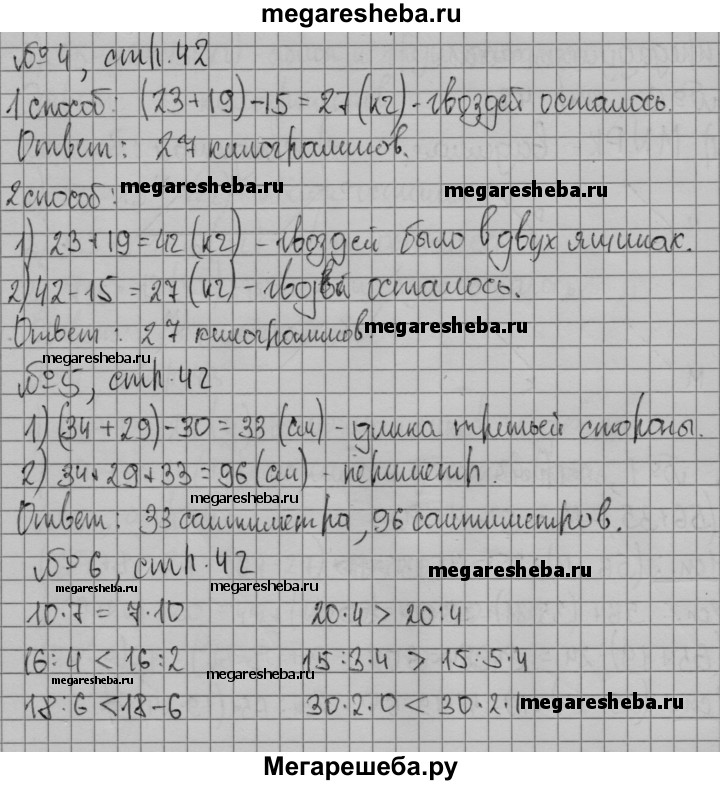 megaresheba.ru
№ 4, стр. 42
1 способ: (23+19)-15=27(кг)-гвоздей осталось.
Ответ: 27 килограммов.
megaresheba.ru megaresheba.ru
2 способ:
1) 23+19=42(кг)-гвоздей было в двух ящиках.
2) 42-15=27(кг)-гвоздей осталось.
Ответ: 27 килограммов. megaresheba.ru
megaresheba.ru
№ 5, стр. 42
1) (34+29)-30=33 (см)-длина третьей стороны.
2) 34+29+33=96 (см)- периметр.
megaresheba.ru megaresheba.ru
Ответ: 33 сантиметра, 96 сантиметров.
№ 6, стр. 42 megaresheba.ru
megaresheba.ru megaresheba.ru
10·7=7·10 20·4>20:4
16:4<16:2 15:3·4>15:5·4
megaresheba.ru megaresheba.ru
18:6<18-6 30·2·0<30·2·1 megaresheba.ru
Мегарешеба.ру